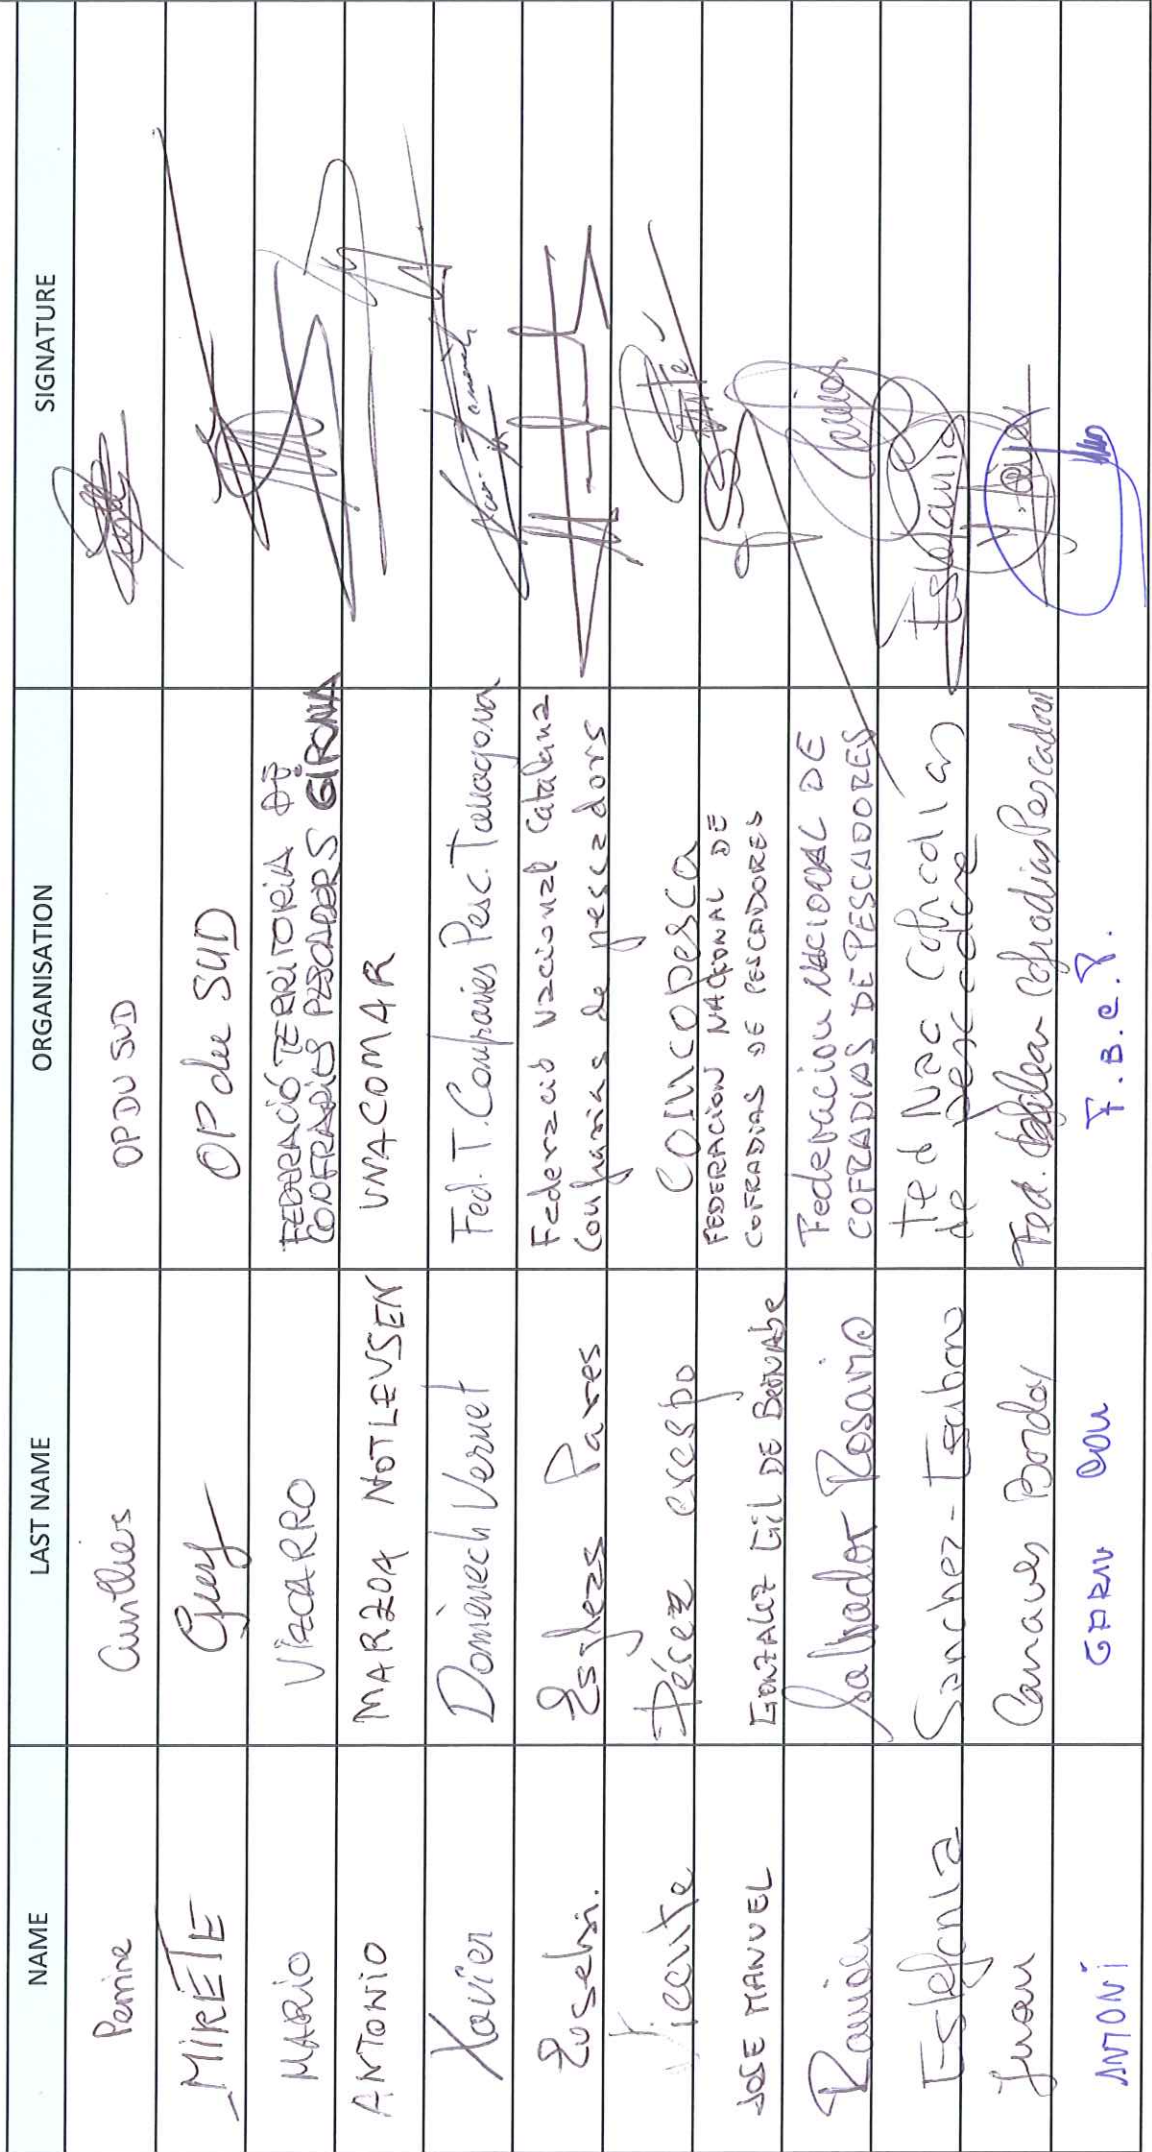 NAME LAST NAME ORGANISATION SIGNATURE
Perrine Cunthers OPDU SUD
MIRETE Guy OP du SUD
MARIO VIZCARRO FEDERACIÓ TERRITORIAL DE
CONFRARIES PESCADORS GIRONA
ANTONIO MARZOA NOTLEVSEN UNACOMAR
Xavier Domènech Vernet Fed. T. Confraries Pesc. Tarragona
Eusebi. Esglezs Pares Federzció Nzcionzl Catalana
Confraries de pesczdors
Vicente Pérez crespo CONCOPESCA
JOSE MANUEL GONZALEZ Gil DE BERNABE FEDERACION NACIONAL DE
COFRADIAS DE PESCADORES
Ramón Salvador Rosario Federacion NACIONAL DE
COFRADIAS DE PESCADORES
Estefania Sanchez - Fed Nac Cofradias
de pescadores
Estefania
Juan Canaves Fed. Balear Cofradias Pescadores
ANTONI GARAU COLL F.B.C.P.